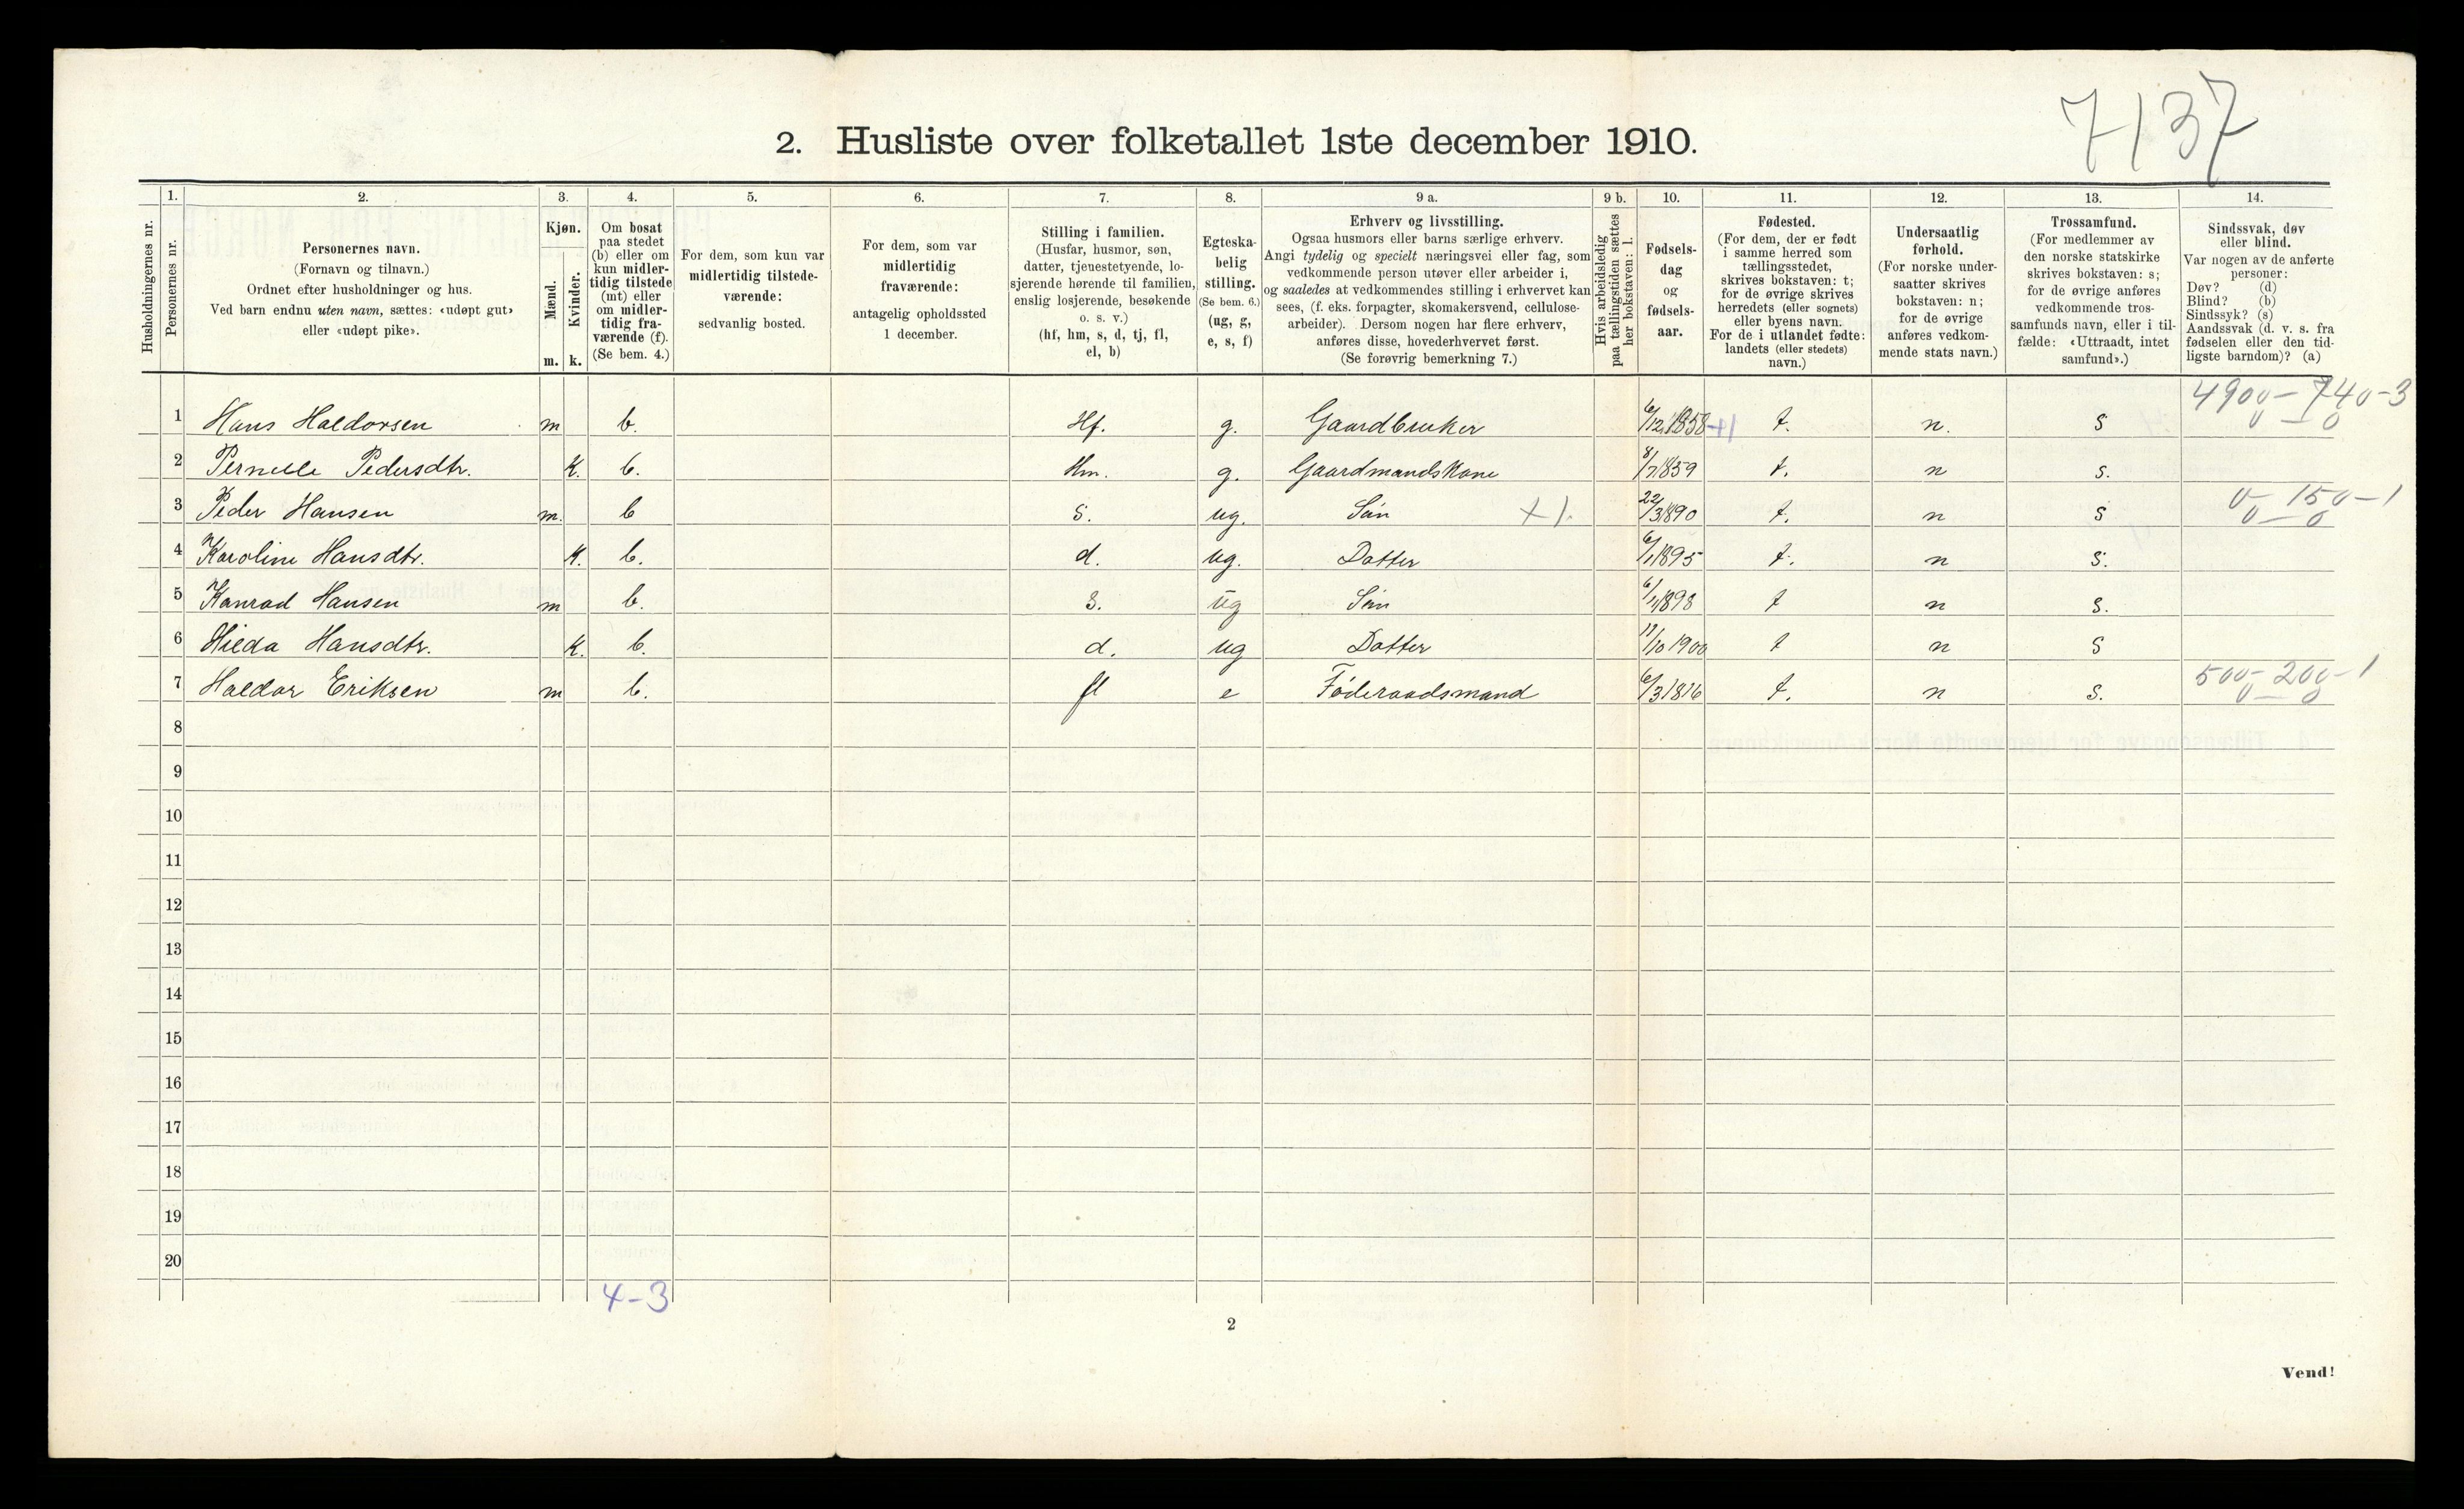 7137
2. Husliste over folketallet 1ste december 1910.
Husholdningernes nr.
1. Personernes nr.
2. Personernes navn.
(Fornavn og tilnavn.)
Ordnet efter husholdninger og hus.
Ved barn endnu uten navn, sættes: «udøpt gut»
eller «udøpt pike».
3. Kjøn.
Mænd. m.
Kvinder. k.
4. Om bosat
paa stedet
(b) eller om
kun midler-
tidig tilstede
(mt) eller
om midler-
tidig fra-
værende (f).
(Se bem. 4.)
5. For dem, som kun var
midlertidig tilstede-
værende:
sedvanlig bosted.
6. For dem, som var
midlertidig
fraværende:
antagelig opholdssted
1 december.
7. Stilling i familien.
(Husfar, husmor, søn,
datter, tjenestetyende, lo-
sjerende hørende til familien,
enslig losjerende, besøkende
o. s. v.)
(hf, hm, s, d, tj, fl,
el, b)
8. Egteska-
belig
stilling.
(Se bem. 6.)
(ug, g,
e, s, f)
9 a. Erhverv og livsstilling.
Ogsaa husmors eller barns særlige erhverv.
Angi tydelig og specielt næringsvei eller fag, som
vedkommende person utøver eller arbeider i,
og saaledes at vedkommendes stilling i erhvervet kan
sees, (f. eks. forpagter, skomakersvend, cellulose-
arbeider). Dersom nogen har flere erhverv,
anføres disse, hovederhvervet først.
(Se forøvrig bemerkning 7.)
9 b. Hvis arbeidsledig
paa tællingstiden sættes
her bokstaven: l.
10. Fødsels-
dag
og
fødsels-
aar.
11. Fødested.
(For dem, der er født
i samme herred som
tællingsstedet,
skrives bokstaven: t;
for de øvrige skrives
herredets (eller sognets)
eller byens navn.
For de i utlandet fødte:
landets (eller stedets)
navn.)
12. Undersaatlig
forhold.
(For norske under-
saatter skrives
bokstaven: n;
for de øvrige
anføres vedkom-
mende stats navn.)
13. Trossamfund.
(For medlemmer av
den norske statskirke
skrives bokstaven: s;
for de øvrige anføres
vedkommende tros-
samfunds navn, eller i til-
fælde: «Uttraadt, intet
samfund».)
14. Sindssvak, døv
eller blind.
Var nogen av de anførte
personer:
Døv? (d)
Blind? (b)
Sindssyk? (s)
Aandssvak (d. v. s. fra
fødselen eller den tid-
ligste barndom)? (a)
1 Hans Haldorsen m b. Hf. g. Gaardbruker 6/12 1858 +1 t. n. s 4900 - 740 - 3
0 - 0
2 Pernelle Pedersdtr. K. b. Hm. g. Gaardmandskone 8/7 1859 t. n s.
3 Peder Hansen m. b s. ug. Søn +1. 22/3 1890 t. n s 0 - 150 - 1
0 - 0
4 Karoline Hansdtr. K. b. d. ug. Datter 6/1 1895 t. n s.
5 Konrad Hansen m b. s. ug Søn 1898 t n s.
6 Hilda Hansdtr. K. b. d. ug Datter 17/10 1900 t n s
7 Haldor Eriksen m b. fl e Føderaadsmand 6/3 1816 t. n s. 500 - 200 - 1
0 - 0
8
9
10
11
12
13
14
15
16
17
18
19
20
4-3
2
Vend!